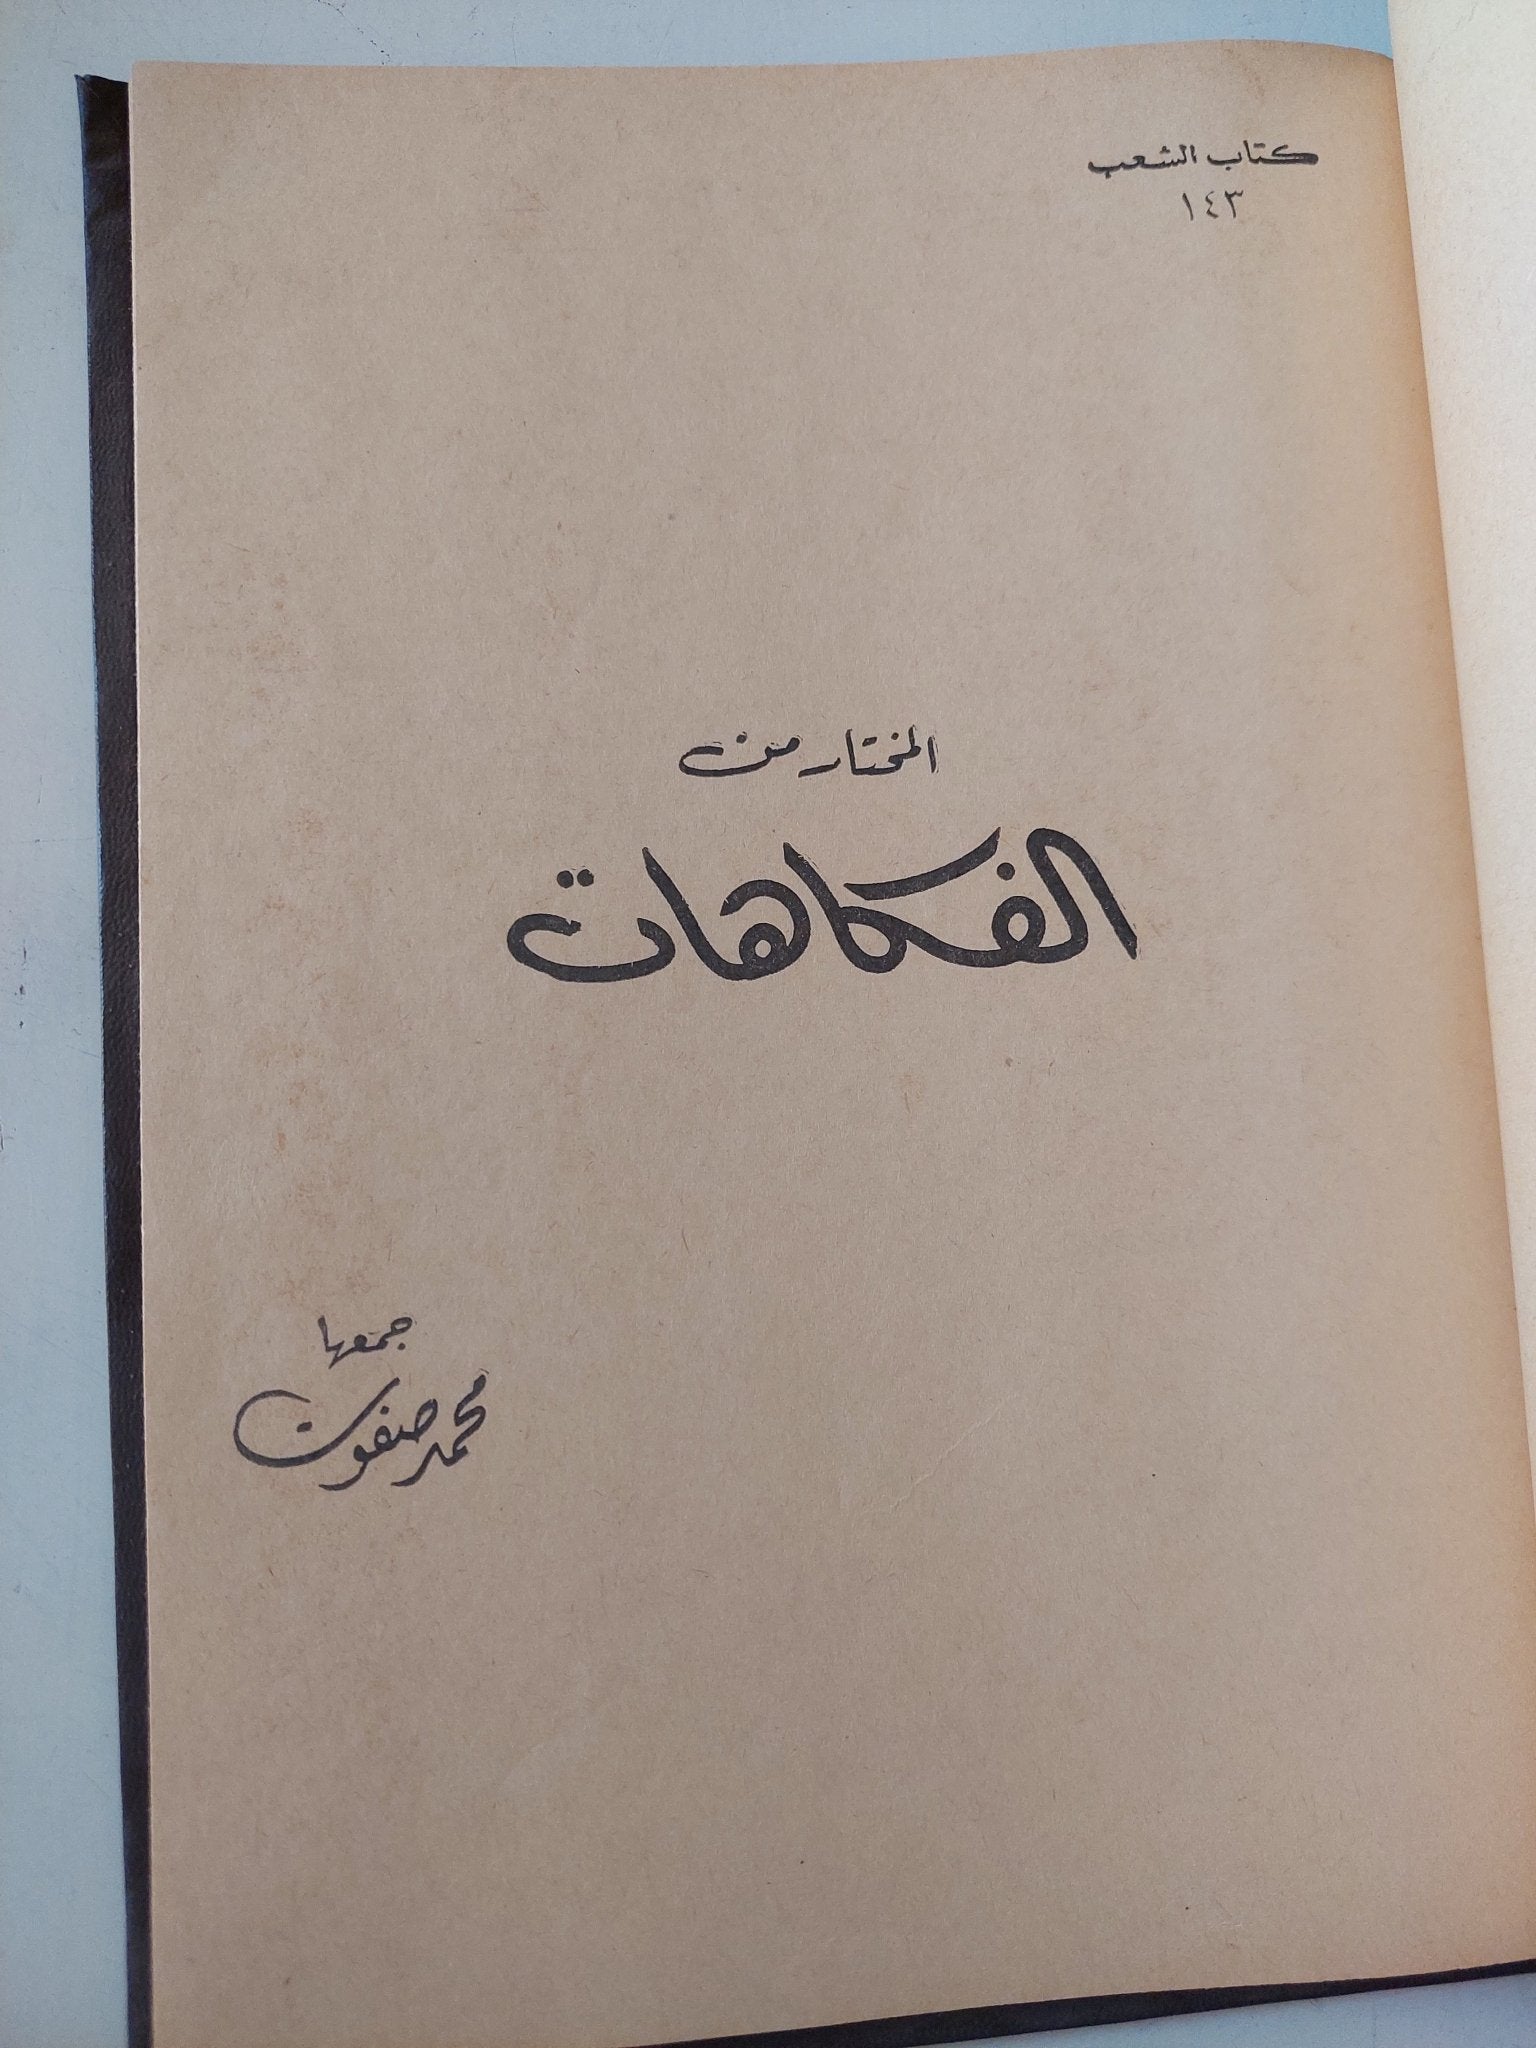 كتاب الشعب
١٤٣
المختار من
الفكاهات
جمعها
محمد صفوت